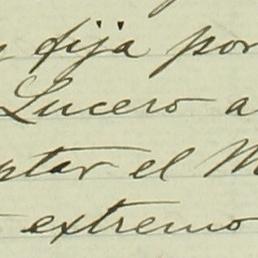 y fija por
Lucero a
ptar el M
extremo